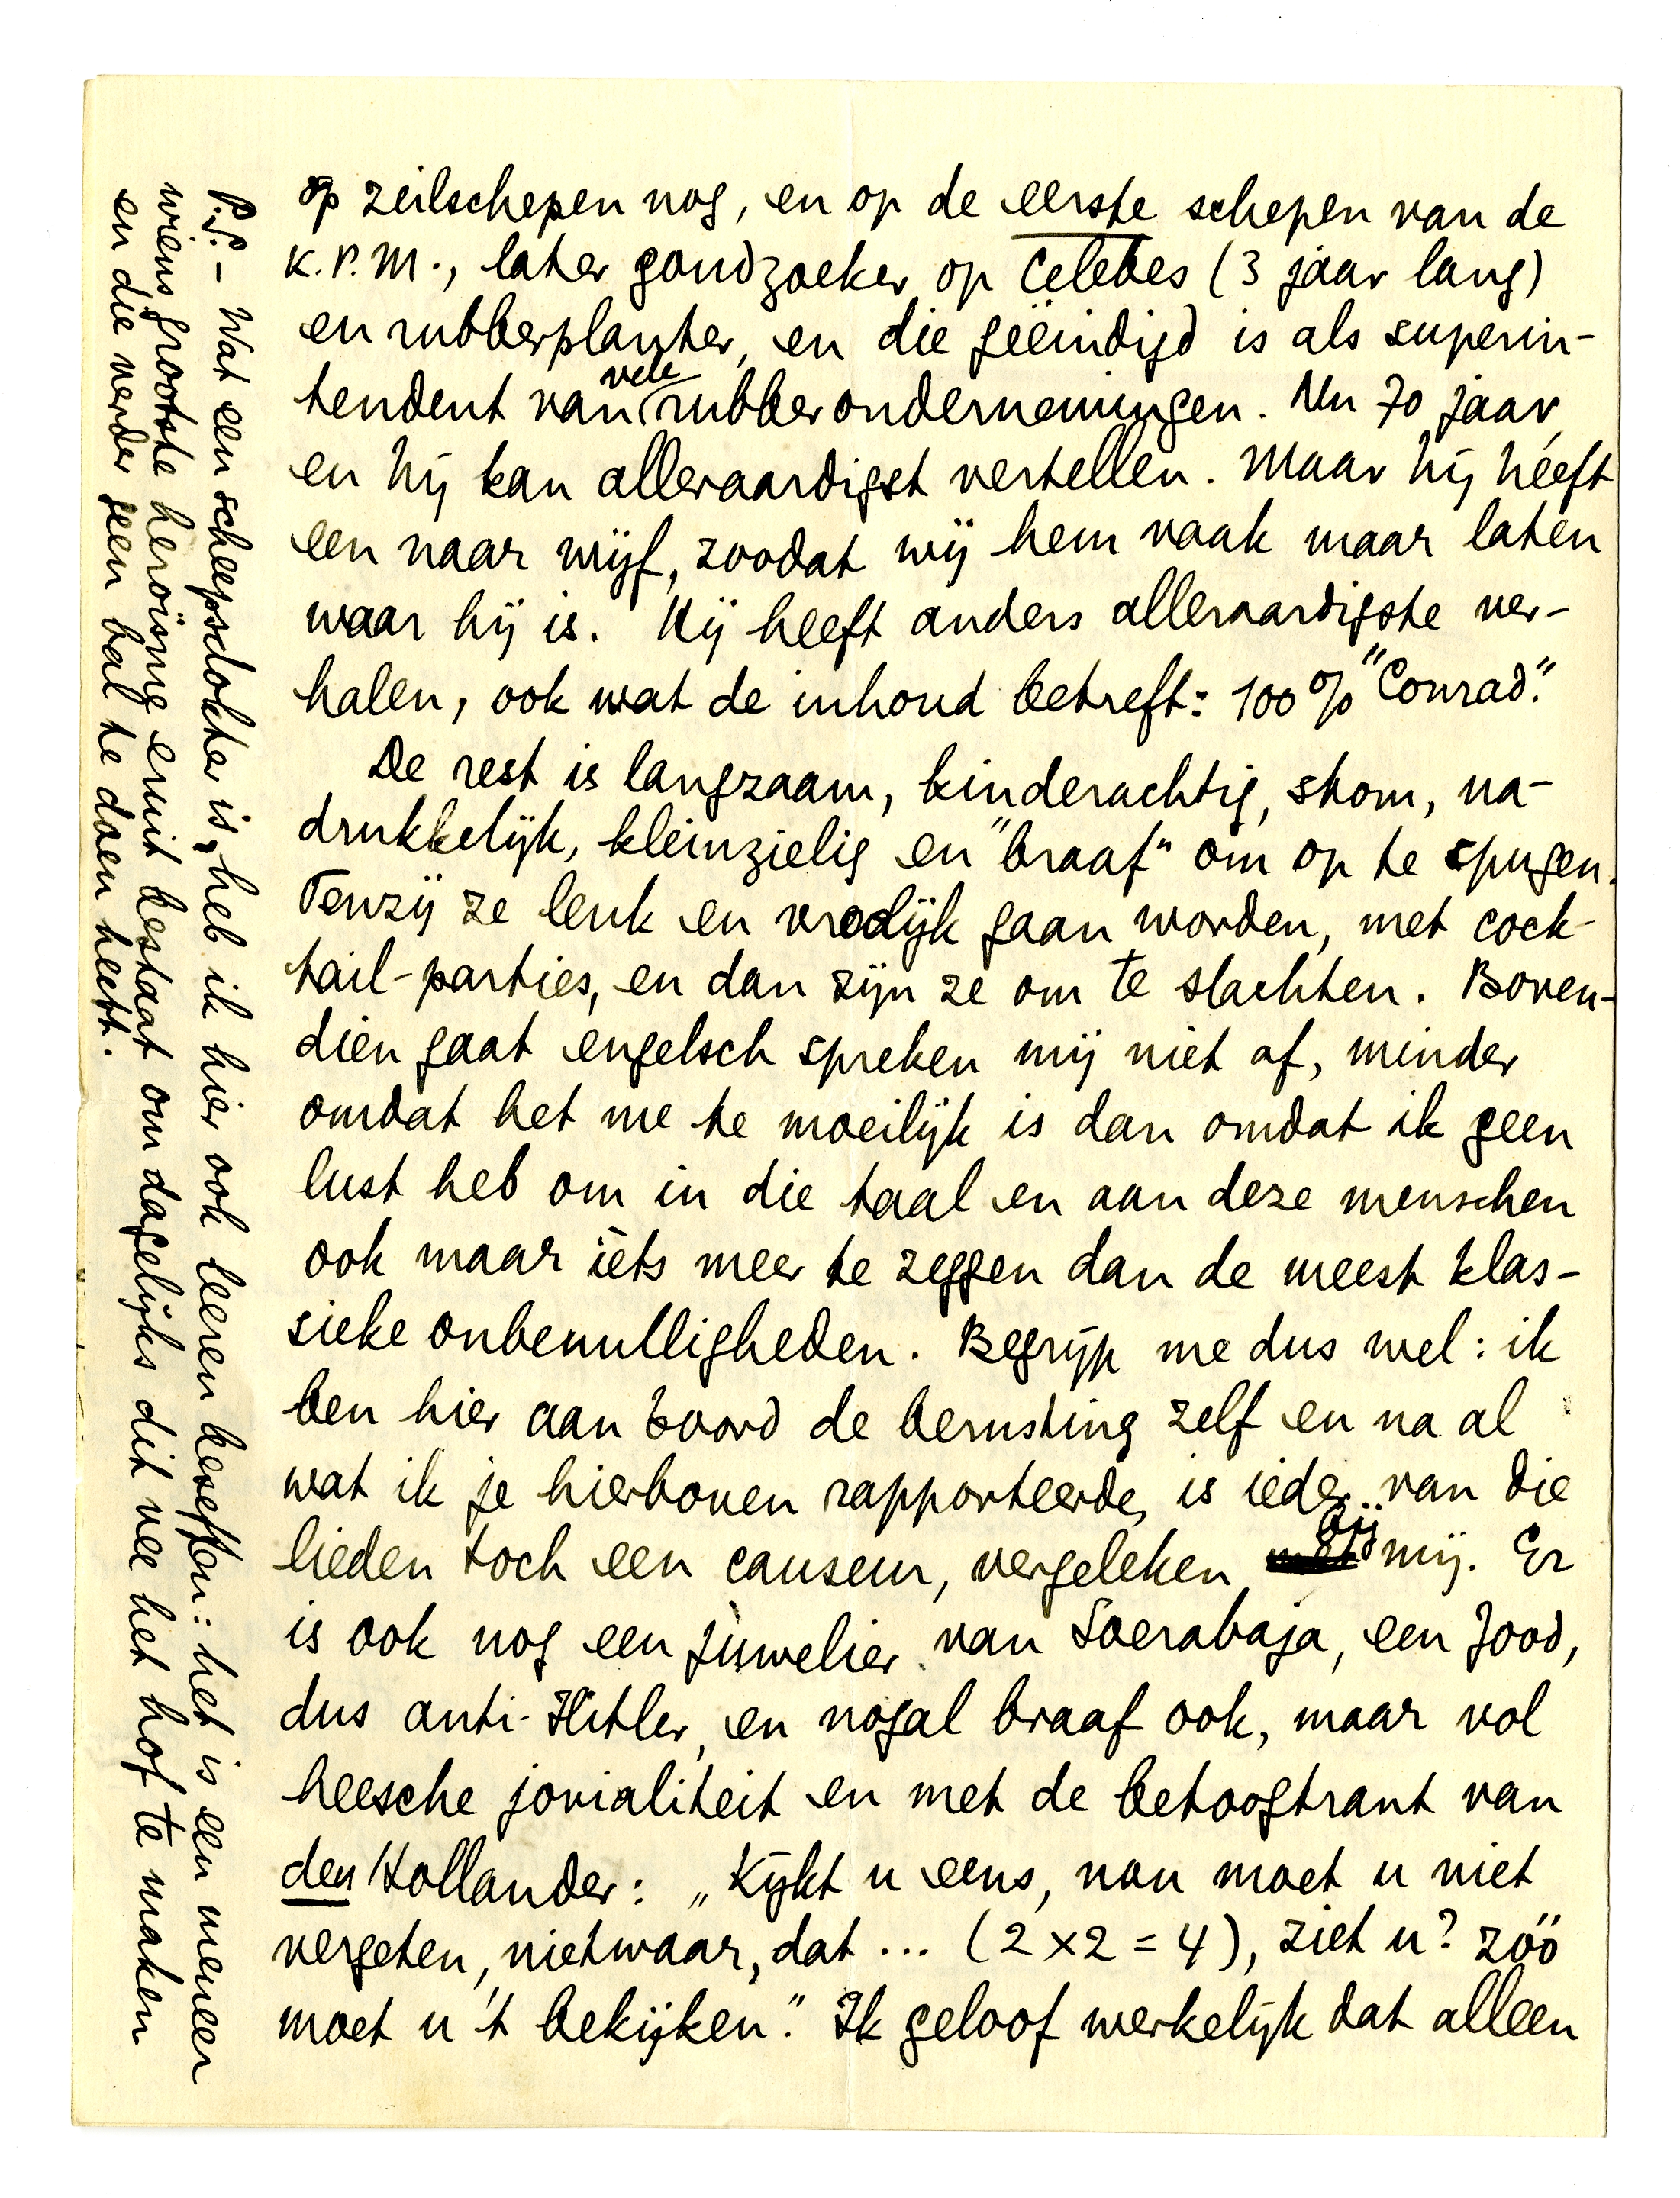 op zeilschepen nog, en op de eerste schepen van de
K.P.M., later goudzoeker op Celebes (3 jaar lang)
en rubberplanter, en die geëindigd is als superin-
tendent van vele rubberondernemingen. Nu 70 jaar,
en hij kan alleraardigst vertellen. Maar hij héeft
een naar wijf, zoodat wij hem vaak maar laten
waar hij is. Hij heeft anders alleraardigste ver-
halen, ook wat de inhoud betreft: 100% "Conrad".
De rest is langzaam, kinderachtig, stom, na-
drukkelijk, kleinzielig en "braaf" om op te spugen.
Tenzij ze leuk en vrolijk gaan worden, met cock-
tail-parties, en dan zijn ze om te slachten. Boven-
dien gaat engelsch spreken mij niet af, minder
omdat het me te moeilijk is dan omdat ik geen
lust heb om in die taal en aan deze menschen
ook maar iets meer te zeggen dan de meest klas-
sieke onbenulligheden. Begrijp me dus wel: ik
ben hier aan boord de berusting zelf en na al
wat ik je hierboven rapporteerde, is ieder van die
lieden toch een causeur, vergeleken met bij mij. Er
is ook nog een juwelier van Soerabaja, een Jood,
dus anti-Hitler, en nogal braaf ook, maar vol
heesche jovialiteit en met de betoogtrant van
den Hollander: „Kijkt u eens, nou moet u niet
vergeten, nietwaar, dat ... (2 x 2 = 4), ziet u? zóó
moet u 't bekijken." Ik geloof werkelijk dat alleen
P.S. – Wat een scheepsdokter is, heb ik hier ook leeren beseffen: het is een meneer
wiens grootste heroïsme eruit bestaat om dagelijks dit vee het hof te maken
en die verder geen bal te doen heeft.